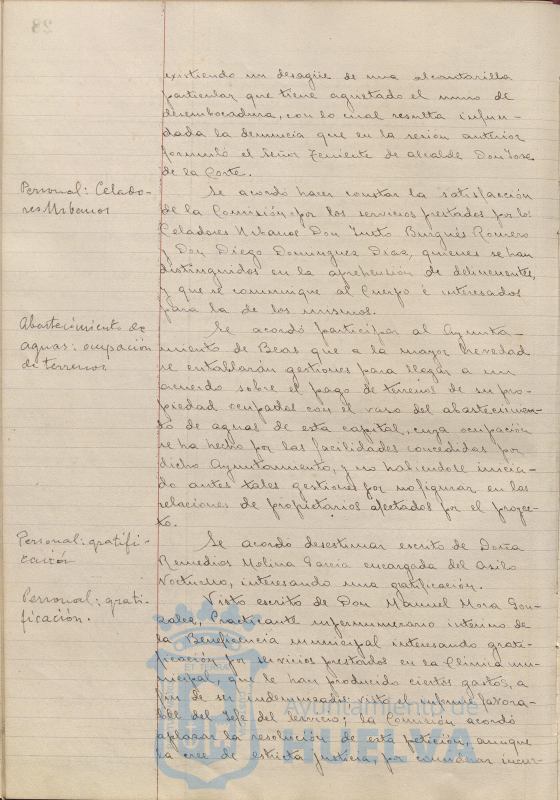 existiendo un desagüe de una alcantarilla
particular que tiene agrietado el muro de
desembocadura, con lo cual resulta infun-
dada la denuncia que en la sesion anterior
formuló el Señor Teniente de alcalde Don José
de la Corte.
Personal: Celado-
res Urbanos
Se acordó hacer constar la satisfacción
de la Comisión por los servicios prestados por los
Celadores Urbanos Don Justo Burgués Romero
y Don Diego Dominguez Diaz, quienes se han
distinguidos en la aprehensión de delincuentes,
y que se comunique al Cuerpo é interesados
para la de los mismos.
Abastecimiento de
aguas: ocupación
de terrenos
Se acordó participar al Ayunta-
miento de Beas que a la mayor brevedad
se entablarán gestiones para llegar a un
acuerdo sobre el pago de terrenos de su pro-
piedad ocupados con el vaso del abastecimien-
to de aguas de esta capital, cuya ocupación
se ha hecho por las facilidades concedidas por
dicho Ayuntamiento, y no habiendose inicia-
do antes tales gestiones por no figurar en las
relaciones de propietarios afectados por el proyec-
to.
Personal: gratifi-
cación
Se acordó desestimar escrito de Doña
Remedios Molina García encargada del Asilo
Nocturno, interesando una gratificación.
Personal: grati-
ficación.
Visto escrito de Don Manuel Mora Gon-
zalez, Practicante supernumerario interino de
la Beneficencia municipal interesando grati-
ficación por servicios prestados en la Clínica mu-
nicipal, que le han producido ciertos gastos, a
fin de ser indemnizado: visto el informe favora-
ble del Jefe del Servicio; la Comisión acordó
aplazar la resolución de esta petición, aunque
la cree de estricta justicia, por considerar
Ayuntamiento de
HUELVA